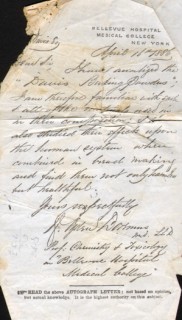 BELLEVUE HOSPITAL
MEDICAL COLLEGE
NEW YORK
April 1st
Dear Sir
I have analyzed the
I am therefore familiar with
all
in their composition. I
also studied their effects upon
the human system when
combined in bread making
and find them not only harmless
but healthful.
Yours respectfully
R. Ogden Doremus
M.D. LL.D
Prof. Chemistry & Toxicology
in "Bellevue Hospital
Medical College"
READ the above AUTOGRAPH LETTER; not based on opinion,
but actual knowledge. It is the highest authority on this subject.